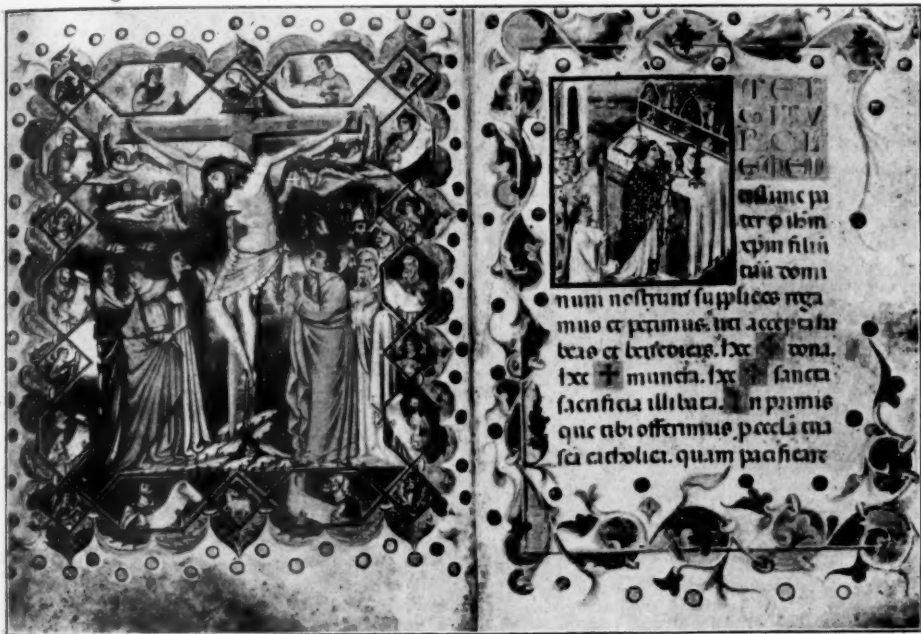 GITV
R CL
EMEN
tissime pa
ter p ihm
xpm filiu
tuu domi
num nostrum supplices roga
mus et petimus. uti accepta ha
beas et benedicas. hec ✠ dona.
hec ✠ munera. hec ✠ sancta
sacrificia illibata. In primis
que tibi offerimus. p eccla tua
sca catholica. quam pacificare